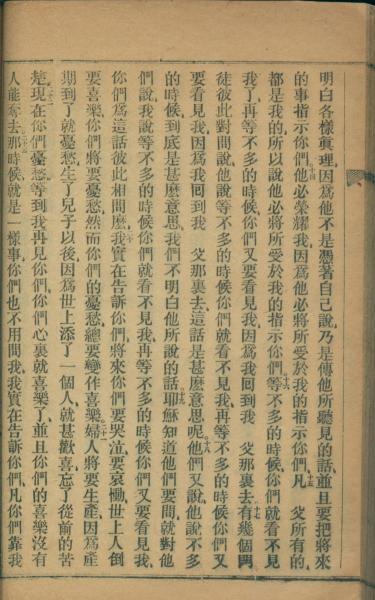 明白各樣眞理、因爲他不是憑著自己說、乃是傳他所聽見的話、並且要把將來
的事指示你們、他必榮耀我、因爲他必將所受於我的指示你們、凡 父所有的、
都是我的、所以說他必將所受於我的指示你們、等不多的時候、你們就看不見
我了、再等不多的時候、你們又要看見我、因爲我回到我 父那裏去、有幾個門
徒彼此對問說、他說等不多的時候、你們就看不見我、再等不多的時候、你們又
要看見我、因爲我回到我 父那裏去、這話是甚麼意思呢、他們又說、他說不多
的時候、到底是甚麼意思、我們不明白他所說的話、耶穌知道他們要問、就對他
們說、我說等不多的時候、你們就看不見我、再等不多的時候、你們又要看見我、
你們爲這話彼此相問麼、我實在告訴你們、將來你們要哭泣、要哀慟、世上人倒
要喜樂、你們將要憂愁、然而你們的憂愁、總要變作喜樂、婦人將要生產、因爲產
期到了、就憂愁、生了兒子以後、因爲世上添了一個人、就甚歡喜、忘了從前的苦
楚、現在你們憂愁、等到我再見你們、你們心裏就喜樂了、並且你們的喜樂、沒有
人能奪去、那時候就是一樣事、你們也不用問我、我實在告訴你們、凡你們靠我